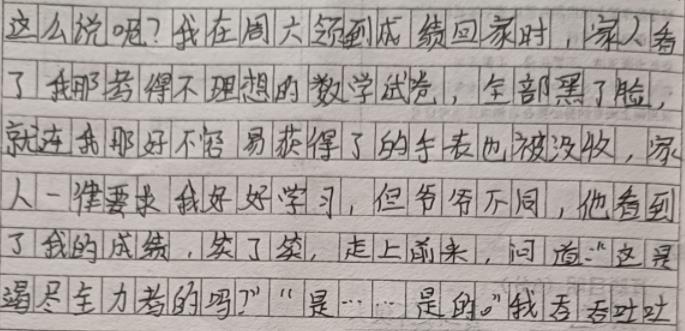 这么说呢？我在周六领到成绩回家时，家人看
了我那考得不理想的数学试卷，全部黑了脸，
就连我那好不容易获得了的手表也被没收，家
人一律要求我好好学习，但爷爷不同，他看到
了我的成绩，笑了笑，走上前来，问道：“这是
竭尽全力考的吗？”“是……是的。”我吞吞吐吐